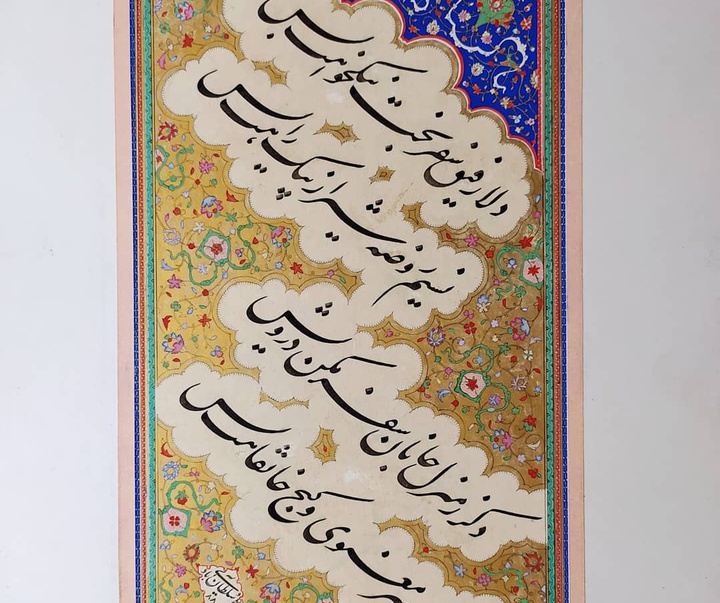 دلا رفیق سفر بخت نیکخواهت بس
نسیم روضه شیراز پیک راهت بس
دگر ز منزل جانان سفر مکن درویش
معنوی و کنج خانقاهت بس